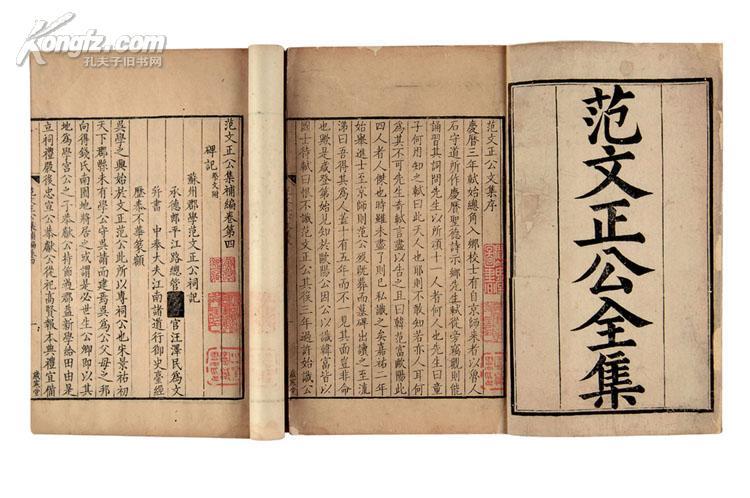 Kongfz.com
孔夫子旧书网
范文正公全集
范文正公文集序
慶曆三年軾始總角入鄉校士有自京師來者以魯人
石守道所作慶曆聖德詩示鄉先生軾從旁竊觀則能
誦習其詞問先生以所頌十一人者何人也先生曰童
子何用知之軾曰此天人也耶則不敢知若亦人耳何
為其不可先生奇軾言盡以告之且曰韓范富歐陽此
四人者人傑也時雖未盡了則已私識之矣嘉祐二年
始舉進士至京師則范公殁既葬而墓碑出讀之至流
涕曰吾得其為人蓋十有五年而不一見其面豈非命
也歟是歲登第始見知於歐陽公因公以識韓富皆以
國士待軾曰恨不識范文正公其後三年過許始識公
范文正公集補編卷第四
碑記 祭文附
蘇州郡學范文正公祠記
承德郎平江路總管 官汪澤民為文
升書 中奉大夫江南諸道行御史臺經
歷泰不華篆額
吳學之興始於文正范公此所以專祠公也宋景祐初
天下郡縣未有學公守吳請而建焉吳為公父母之邦
向得錢氏南園地將居之或謂是必世生公卿即以其
地為學宮公之子奉獻公持節過郡益新學給田由是
立祠禮嚴後忠宣公恭獻公從祀高賢報本典禮宜備
歲寒堂